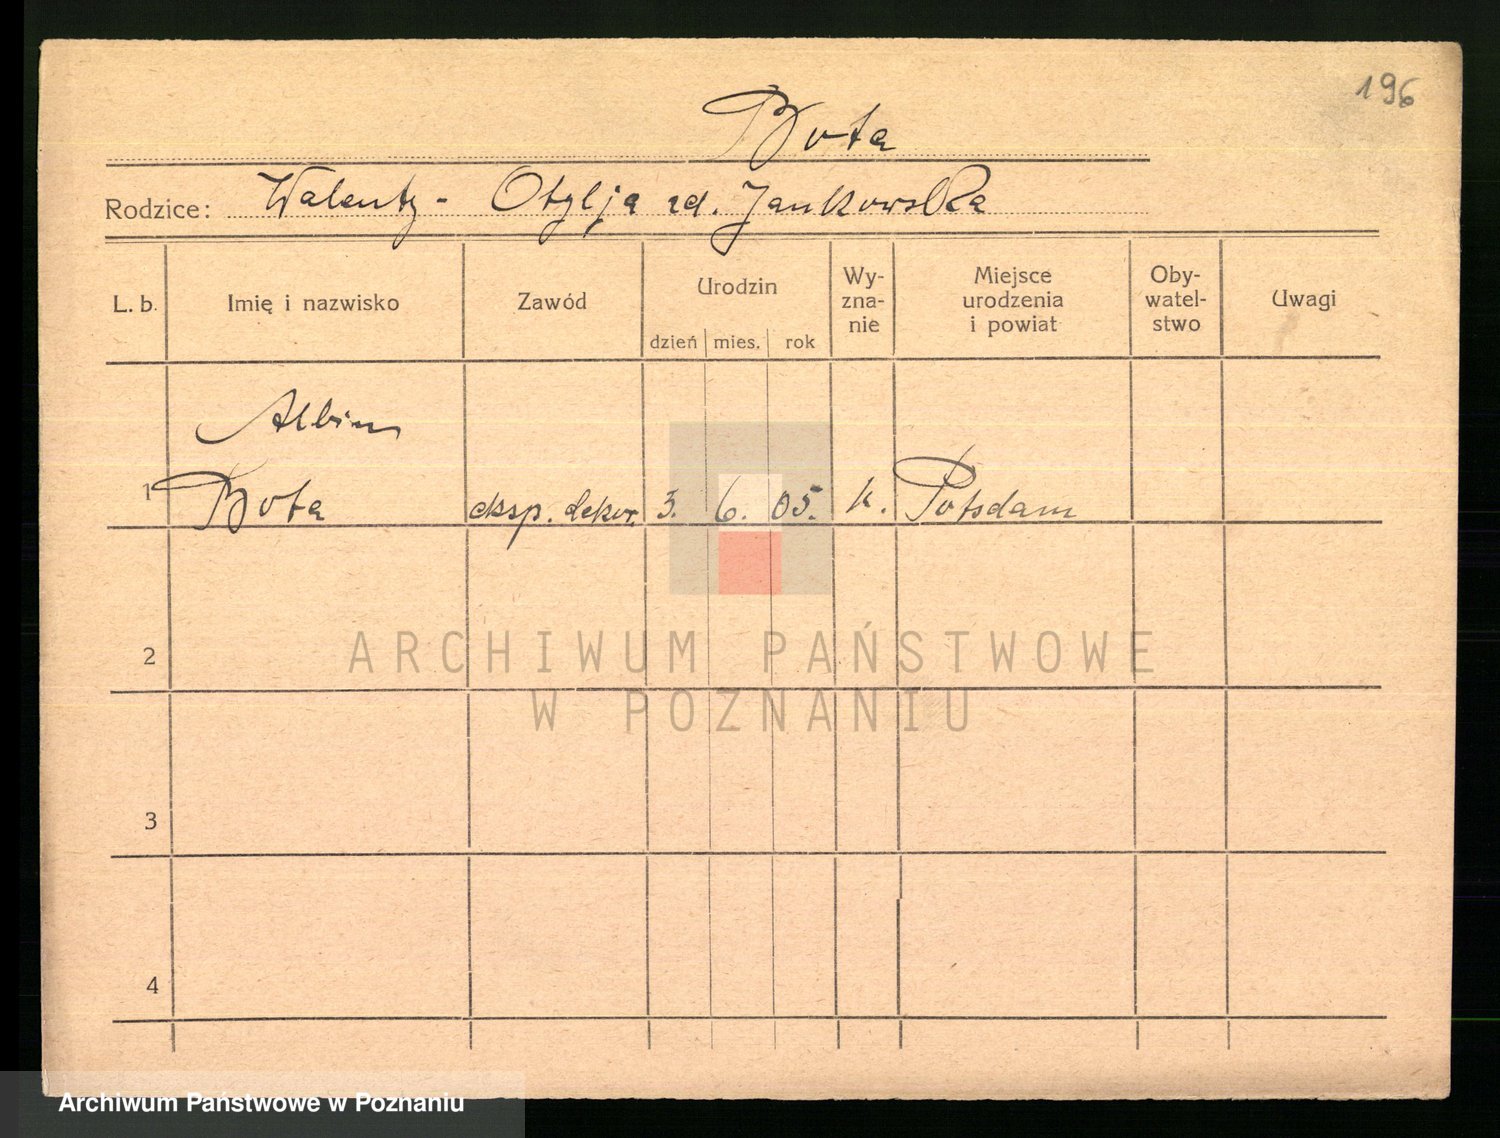 196
Bota
Rodzice: Walenty - Otylja zd. Jankowska
L. b.
Imię i nazwisko
Zawód
Urodzin
dzień mies. rok
Wy-
zna-
nie
Miejsce
urodzenia
i powiat
Oby-
watel-
stwo
Uwagi
Albin
1 Bota eksp. dekor. 3. 6. 05. k. Potsdam
2
3
4
ARCHIWUM PAŃSTWOWE
W POZNANIU
Archiwum Państwowe w Poznaniu